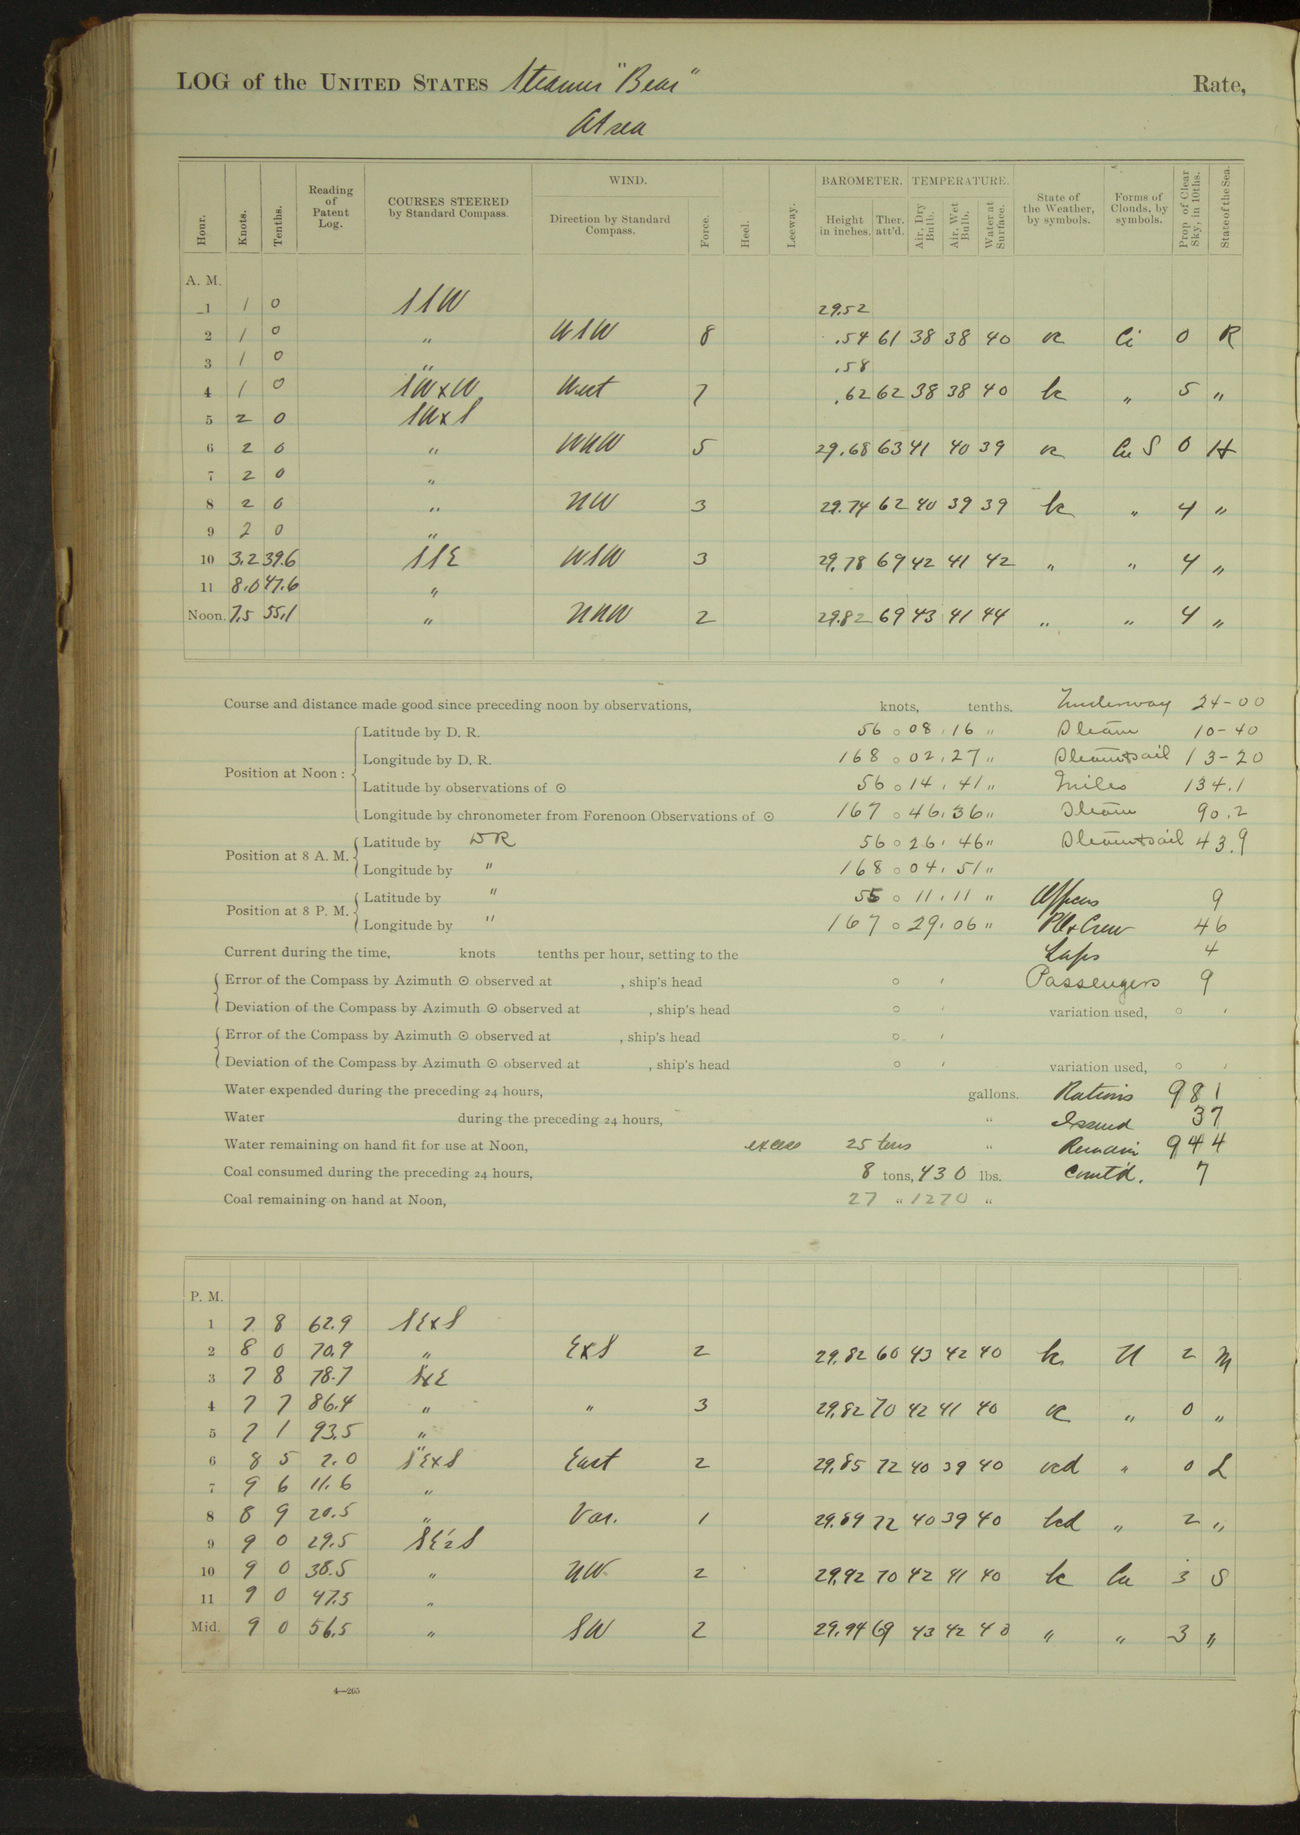 LOG of the UNITED STATES Steamer "Bear" Rate,
At sea
Hour. Knots. Tenths. Reading of Patent Log. COURSES STEERED by Standard Compass. WIND. Direction by Standard Compass. Force. Heel. Leeway. BAROMETER. Height in inches. Ther. att'd. TEMPERATURE. Air, Dry Bulb. Air, Wet Bulb. Water at Surface. State of the Weather, by symbols. Forms of Clouds, by symbols. Prop. of Clear Sky, in 10ths. State of the Sea.
A. M.
1 1 0 SSW 29.52
2 1 0 " WSW 8 .54 61 38 38 40 oc Ci 0 R
3 1 0 " .58
4 1 0 SWxW West 7 .62 62 38 38 40 bc " 5 "
5 2 0 SWxS
6 2 0 " WNW 5 29.68 63 41 40 39 oc Cu S 0 H
7 2 0 "
8 2 0 " NW 3 29.74 62 40 39 39 bc " 4 "
9 2 0 "
10 3.2 39.6 SSE WSW 3 29.78 69 42 41 42 " " 4 "
11 8.0 47.6 "
Noon. 7.5 55.1 " NNW 2 29.82 69 43 41 44 " " 4 "
Course and distance made good since preceding noon by observations, knots, tenths. Underway 24-00
Position at Noon: Latitude by D. R. 56 ° 08 ' 16 " Steam 10-40
Longitude by D. R. 168 ° 02 ' 27 " Steam & sail 13-20
Latitude by observations of ⊙ 56 ° 14 ' 41 " Miles 134.1
Longitude by chronometer from Forenoon Observations of ⊙ 167 ° 46 ' 36 " Steam 90.2
Position at 8 A. M. Latitude by DR 56 ° 26 ' 46 " Steam & sail 43.9
Longitude by " 168 ° 04 ' 51 "
Position at 8 P. M. Latitude by " 55 ° 11 ' 11 " Officers 9
Longitude by " 167 ° 29 ' 06 " PO & Crew 46
Current during the time, knots tenths per hour, setting to the 4
Error of the Compass by Azimuth ⊙ observed at , ship's head ° ' Passengers 9
Deviation of the Compass by Azimuth ⊙ observed at , ship's head ° ' variation used, ° '
Error of the Compass by Azimuth ⊙ observed at , ship's head ° '
Deviation of the Compass by Azimuth ⊙ observed at , ship's head ° ' variation used, ° '
Water expended during the preceding 24 hours, gallons. Rations 981
Water during the preceding 24 hours, " Issued 37
Water remaining on hand fit for use at Noon, excess 25 tons " Remain 944
Coal consumed during the preceding 24 hours, 8 tons, 430 lbs. Comt'd. 7
Coal remaining on hand at Noon, 27 " 1270 "
P. M.
1 7 8 62.9 SExS
2 8 0 70.9 " ExS 2 29.82 60 43 42 40 bc N 2 M
3 7 8 78.7 SxE
4 7 7 86.4 " " 3 29.82 70 42 41 40 oc " 0 "
5 7 1 93.5 "
6 8 5 2.0 SExS East 2 29.85 72 40 39 40 ocd " 0 L
7 9 6 11.6 "
8 8 9 20.5 " Var. 1 29.89 72 40 39 40 bcd " 2 "
9 9 0 29.5 SE½S
10 9 0 38.5 " NW 2 29.92 70 42 41 40 bc Cu 3 S
11 9 0 47.5 "
Mid. 9 0 56.5 " SW 2 29.94 69 43 42 40 " " 3 "
4—265